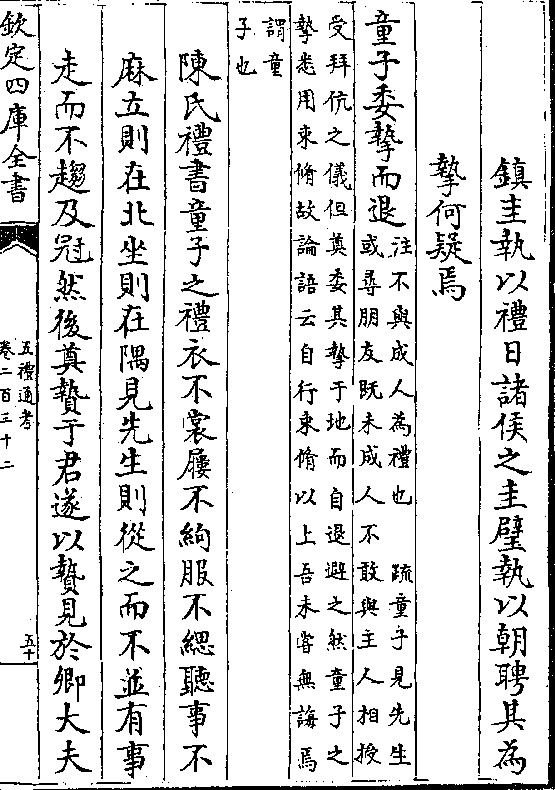 鎮圭執以禮日諸侯之圭璧執以朝聘其為
摯何疑焉
童子委摯而退
注不與成人為禮也　疏童子見先生
或尋朋友既未成人不敢與主人相授
受拜伉之儀但奠委其摯于地而自退避之然童子之
摯悉用束脩故論語云自行束脩以上吾未嘗無誨焉
謂童
子也
陳氏禮書童子之禮衣不裳屨不絇服不緦聽事不
麻立則在北坐則在隅見先生則從之而不並有事
走而不趨及冠然後奠贄于君遂以贄見於卿大夫
欽定四庫全書
五禮通考
卷二百三十二
五十